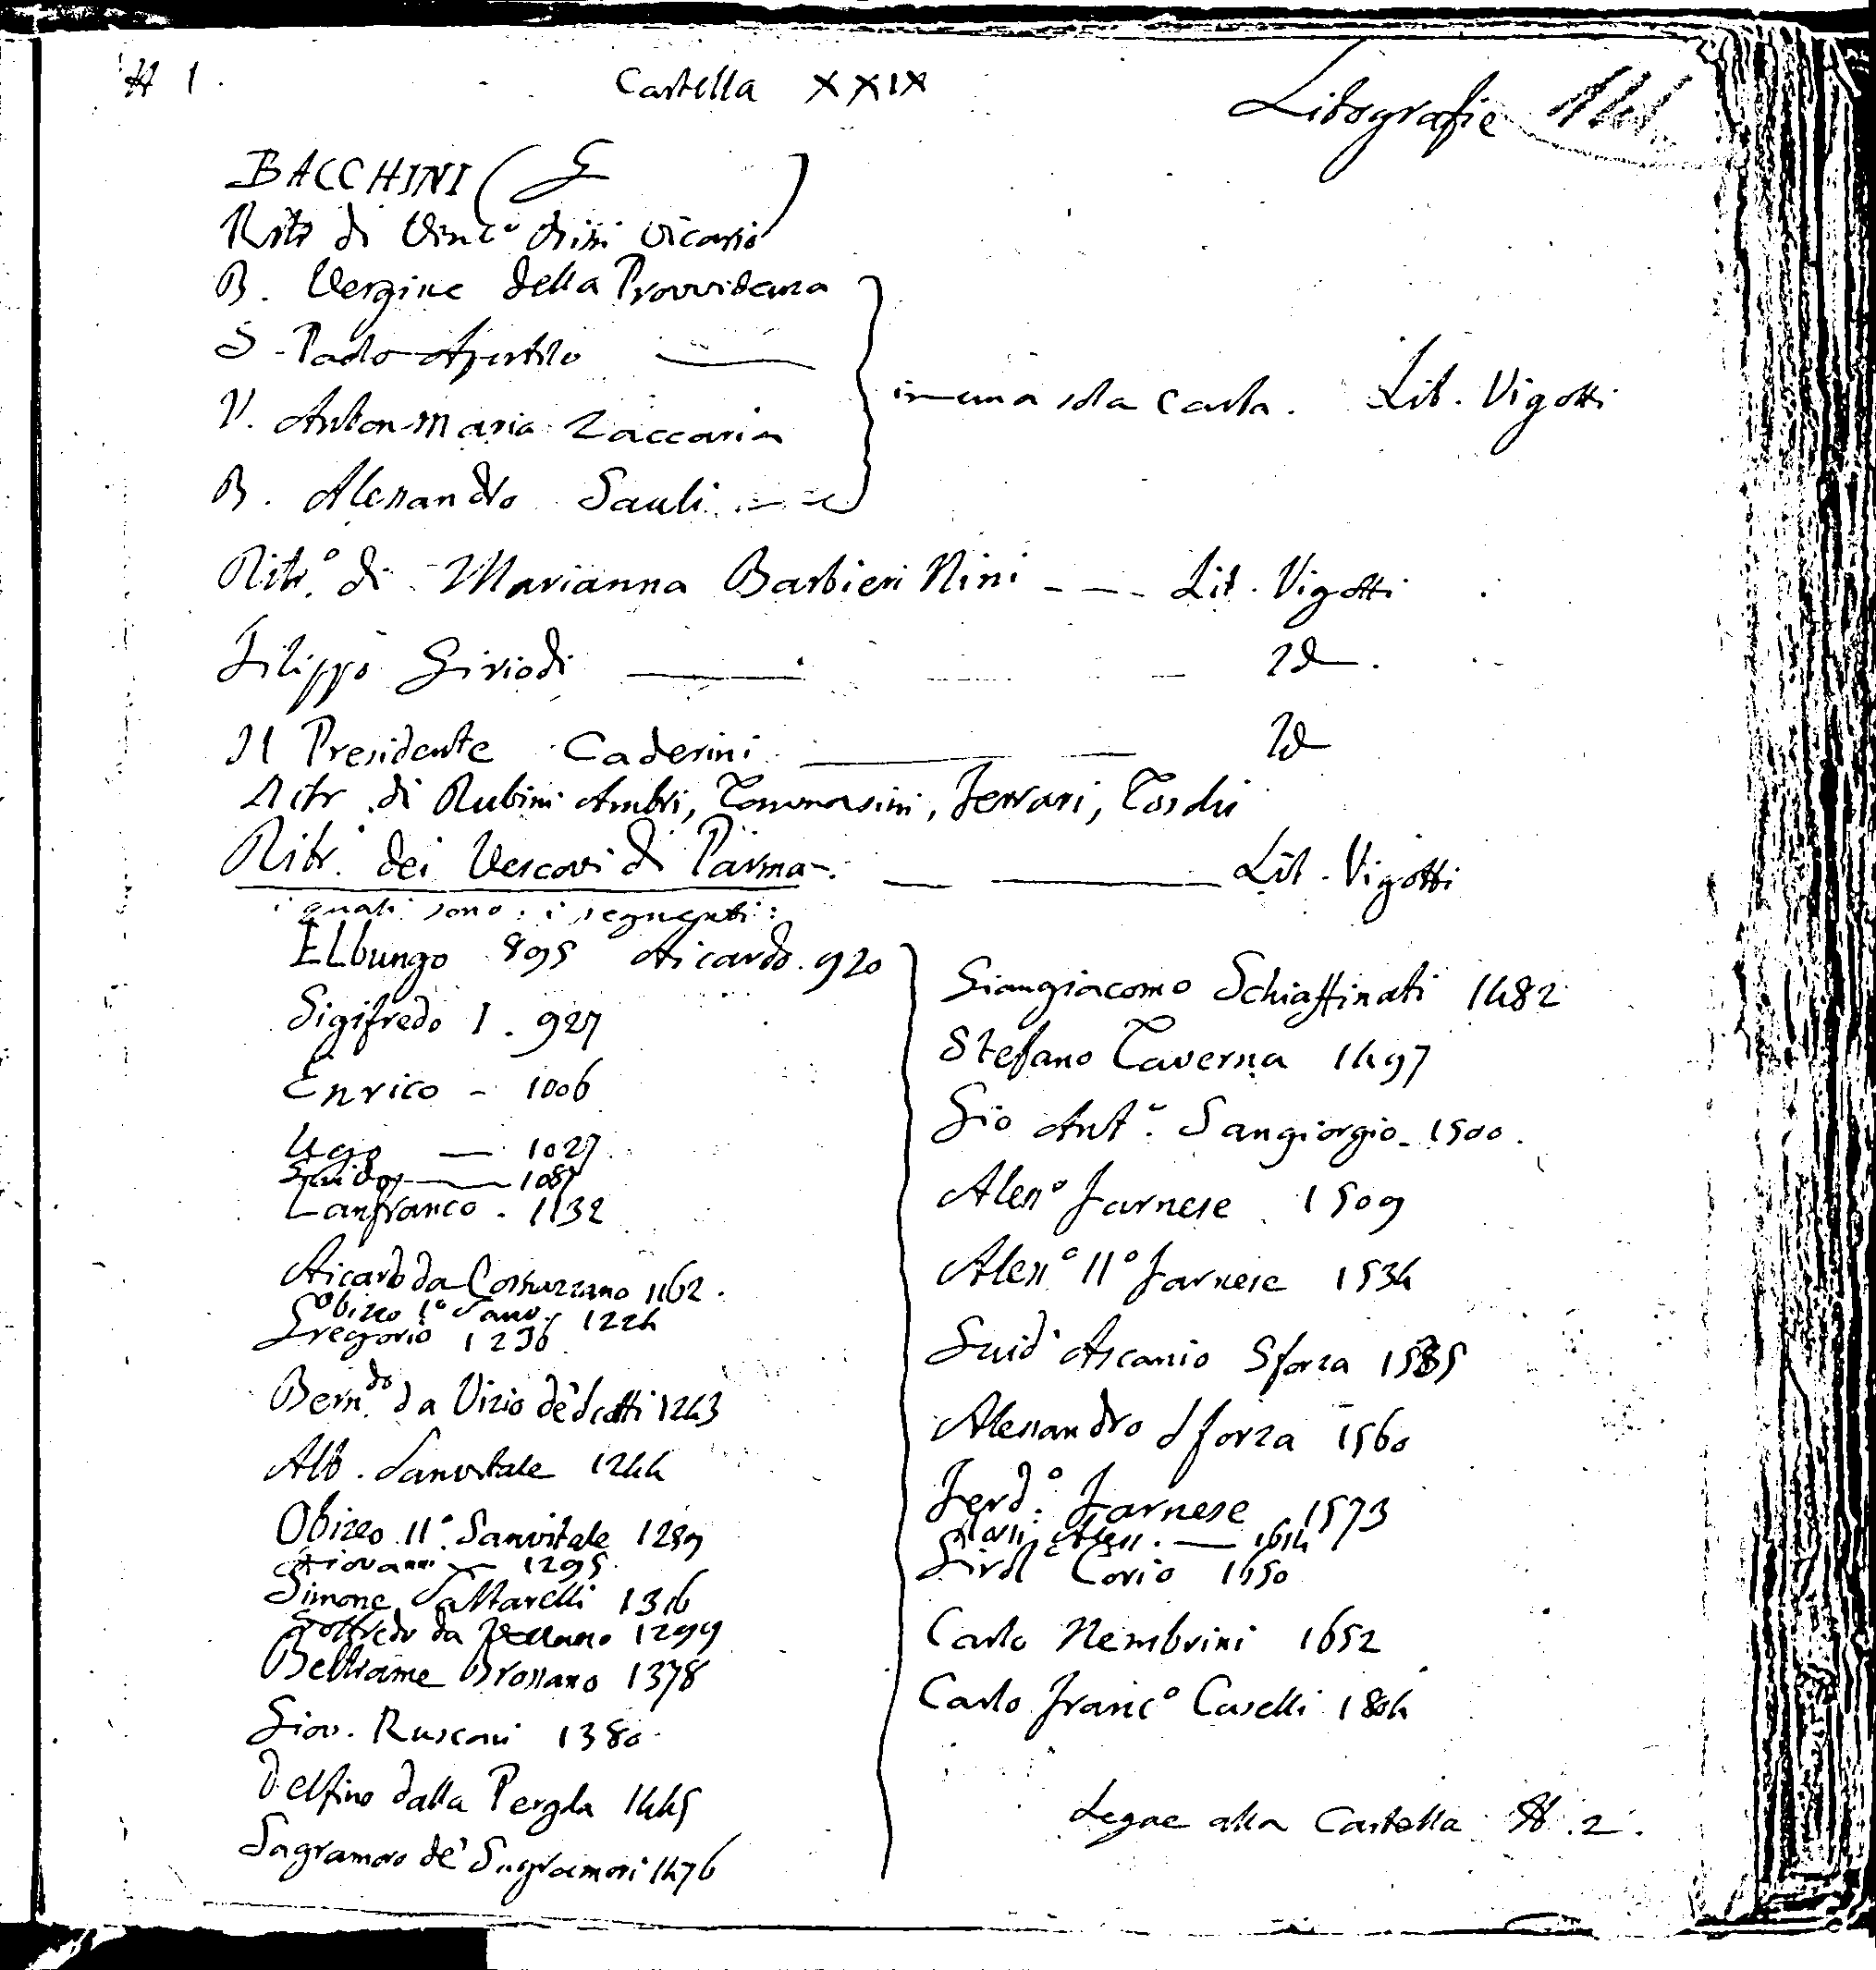 # 1. Cartella XXIX Litografie
BACCHINI ( G )
Ritr di Vinc° Vicario
B. Vergine della Provvidenza
S. Paolo Apostolo
V. Anton Maria Zaccaria
B. Alessandro Sauli
in una sola carta. Lit. Vigotti
Ritr.° di Marianna Barbieri Nini --- Lit. Vigotti
Filippo Giriodi — Id
Il Presidente Caderini — Id
Ritr di Rubini Ambri, Tommasini, Ferrari, Toschi
Ritr. dei Vescovi di Parma. — Lit. Vigotti
i quali sono i seguenti:
Elbungo 895 Aicardo. 920
Sigifredo I. 927
Enrico - 1006
Ugo — 1027
Guido — 1087
Lanfranco. 1132
Aicardo da Cornazzano 1162.
Obizzo 1° Sanv. 1224
Gregorio 1230
Bern.do da Vizio de' Scotti 1243
Alb. Sanvitale 1244
Obizzo II°. Sanvitale 1259
Giovanni — 1295
Simone Saltarelli 1316
Goffredo da 1299
Beltrame Brossano 1378
Giov. Rusconi 1380
Delfino dalla Pergola 1445
Sagramoro de' Sagramori 1476
Giangiacomo Schiaffinati 1482
Stefano Taverna 1497
Gio Ant°. Sangiorgio - 1500.
Aless° Farnese 1509
Aless° II° Farnese 1534
Guid° Ascanio Sforza 1535
Alessandro Sforza 1560
Ferd°. Farnese 1573
1614
Girol° Corio 1650
Carlo Nembrini 1652
Carlo Franc° Caselli 1804
Segue alla Cartella # 2.